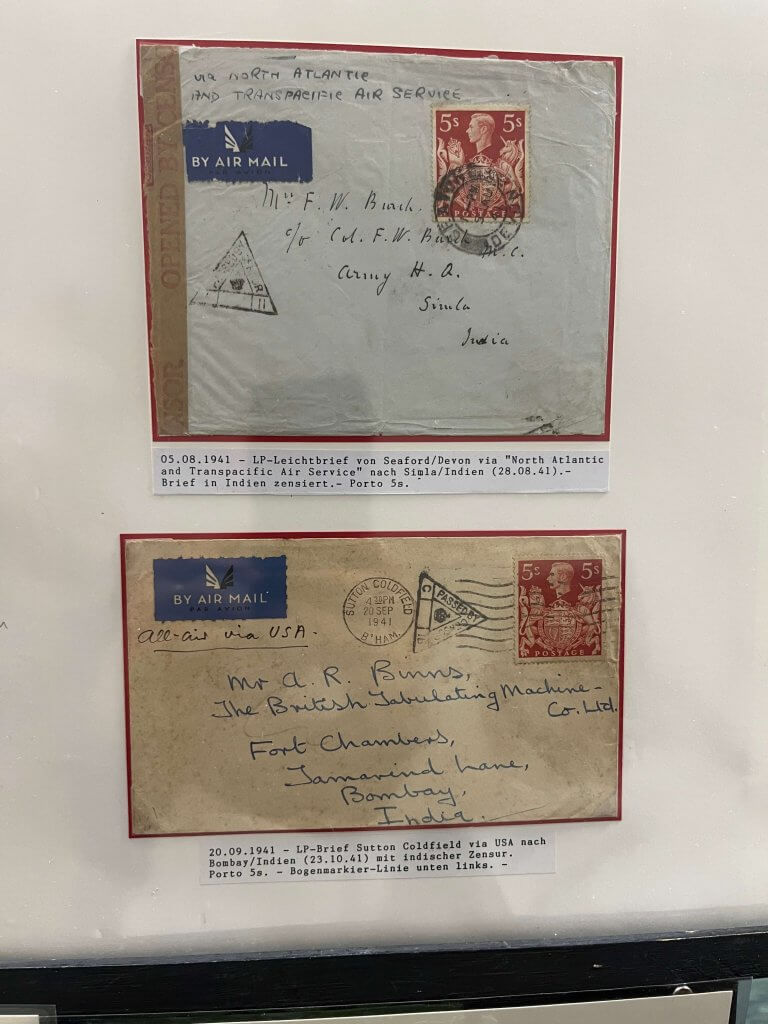 via NORTH ATLANTIC
AND TRANSPACIFIC AIR SERVICE
5s 5s
BY AIR MAIL
PAR AVION
OPENED BY
POSTAGE
F. W. Burch
c/o Col. F. W. M.C.
Army H. Q.
Simla
India
05.08.1941 - LP-Leichtbrief von Seaford/Devon via "North Atlantic
and Transpacific Air Service" nach Simla/Indien (28.08.41).-
Brief in Indien zensiert.- Porto 5s.
BY AIR MAIL
PAR AVION
SUTTON COLDFIELD
4 30 PM
20 SEP
1941
B'HAM.
PASSED BY
C
5s 5s
POSTAGE
All-air via USA.
Mr A. R. Binns,
The British Tabulating Machine
Co. Ltd.
Fort Chambers,
Tamarind Lane,
Bombay,
India.
20.09.1941 - LP-Brief Sutton Coldfield via USA nach
Bombay/Indien (23.10.41) mit indischer Zensur.
Porto 5s. - Bogenmarkier-Linie unten links. -